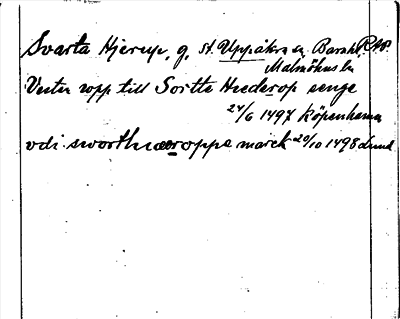 Svarta Hjerup, g, St. Uppåkra sn Barah. RAP.
Malmöhus ln
Vester wpp till Sortte Huderop senge
24/6 1497 Köpenhamn
vdi sworthæroppe marck 20/10 1498 Lund